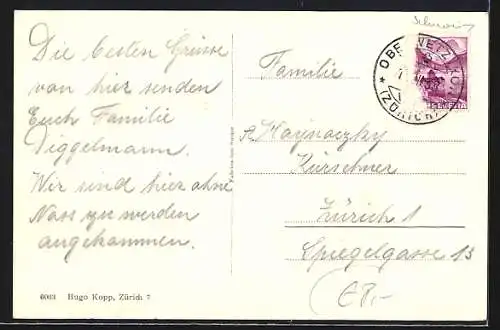 Die besten Grüsse
von hier senden
Euch Familie
Diggelmann.
Wir sind hier ohne
Nass zu werden
angekommen.
6003 Hugo Kopp, Zürich 7
Schweiz
OBERWETZIKON
(ZÜRICH)
HELVETIA
Familie
Kürschner
Zürich 1
Spiegelgasse 13